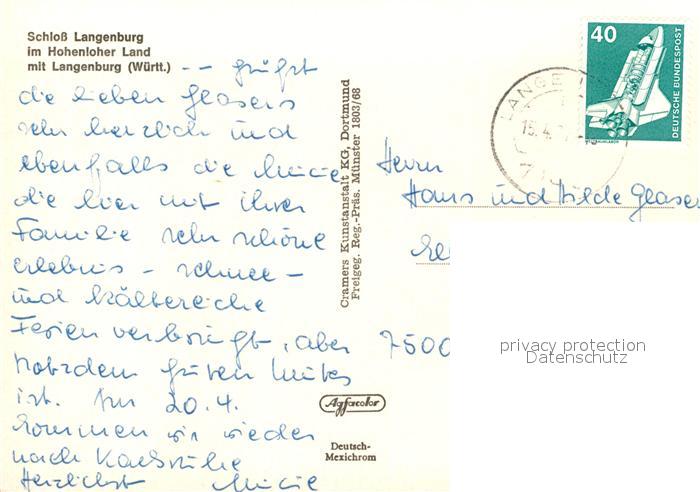 Schloß Langenburg
im Hohenloher Land
mit Langenburg (Württ.) -- grüßt
die lieben Glasers
sehr herzlich und
ebenfalls die Mucie
die hier mit ihrer
Familie sehr schöne
erlebnis - schnee -
und kältereiche
Ferien verbringt, aber
trotzdem guten Mutes
ist. Am 20.4.
kommen wir wieder
nach Karlsruhe
Herzlichst Mucie
Cramers Kunstanstalt KG, Dortmund
Freigeg. Reg.-Präs. Münster 1803/68
Agfacolor
Deutsch-
Mexichrom
40
DEUTSCHE BUNDESPOST
LANGE
15.4.
Herrn
Hans und Hilde Glaser
7500
privacy protection
Datenschutz